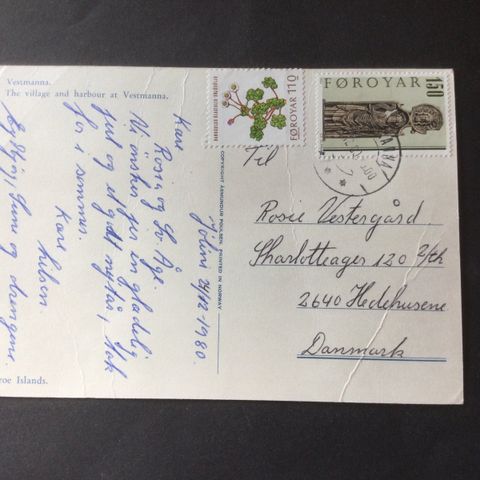 Vestmanna.
The village and harbour at Vestmanna.
Jólini 24/12-1980.
Kære
Rosie og Sv. Åge.
Vi ønsker jer en glædelig
jul og et godt nytår, tak
for i sommer.
Kære hilsen
Eyðbjørg, Suni og drengene.
roe Islands.
COPYRIGHT ÁSMUNDUR POULSEN. PRINTED IN NORWAY
FØROYAR 110
FØROYAR
150
Til
Rosie Vestergård
Sharlotteager 120 2/th
2640 Hedehusene
Danmark